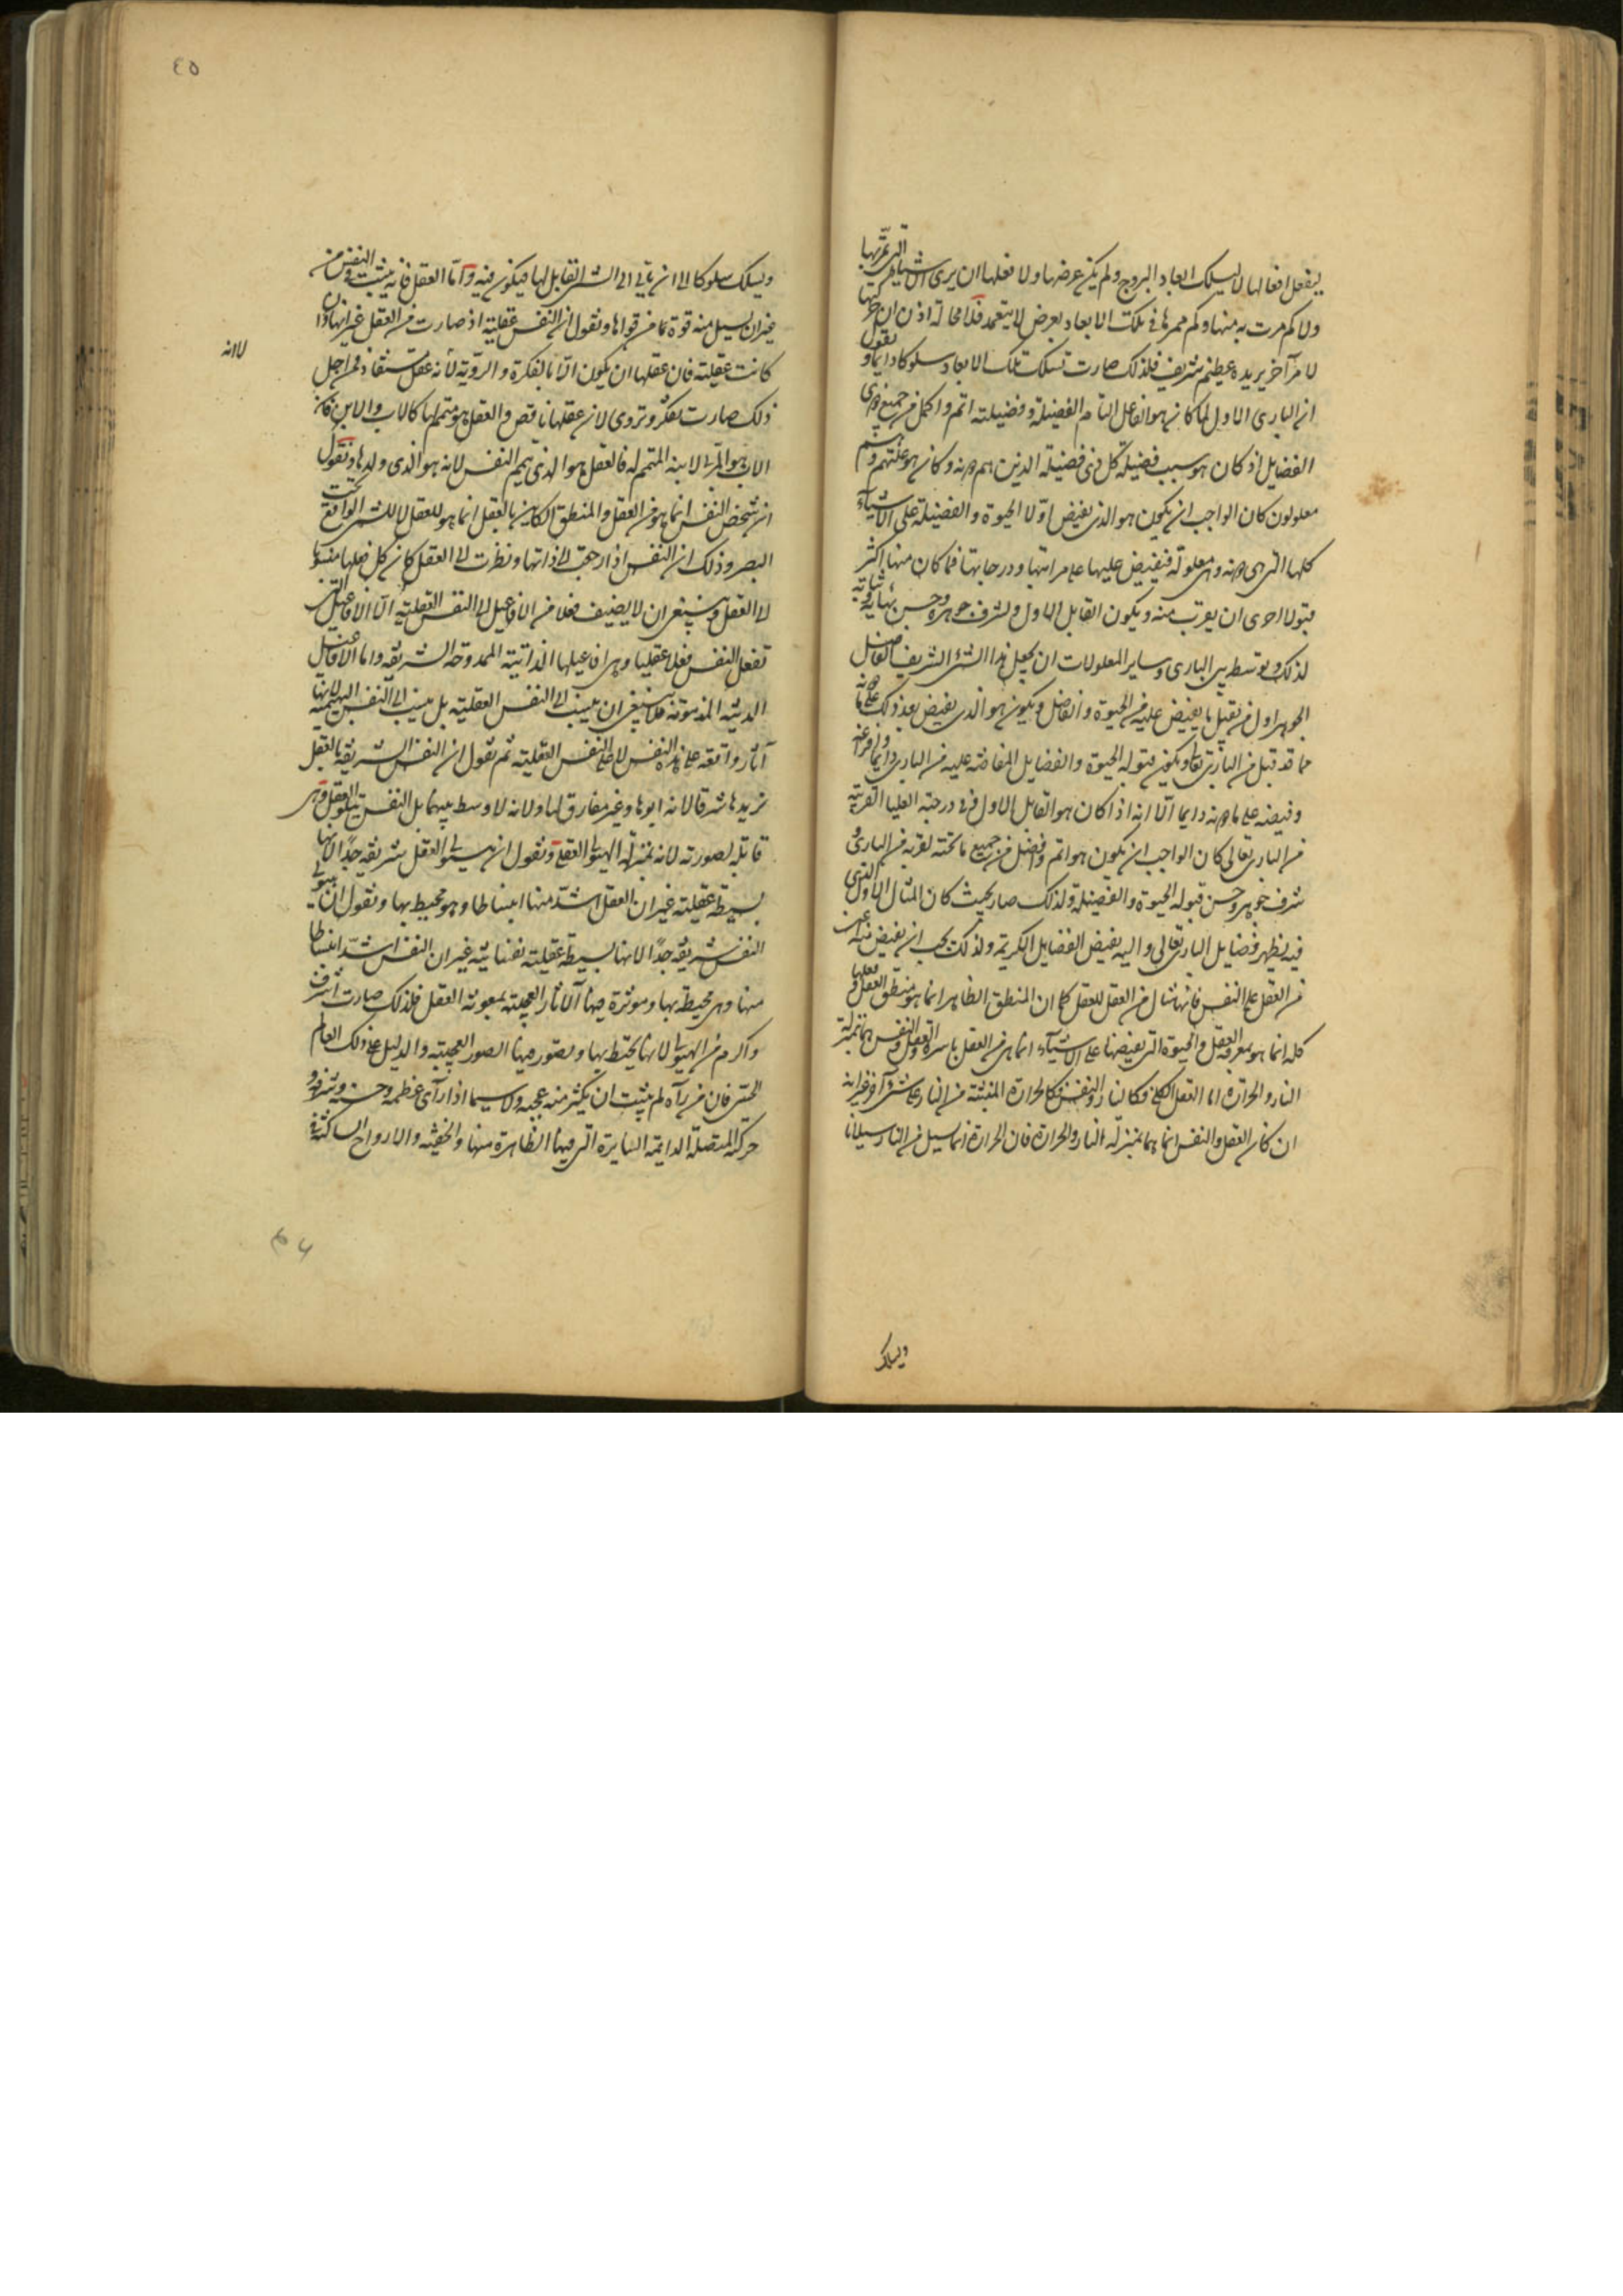 ينفعل افعالها لا ليسلك ابعاد البروج ولم يكن غرضها ولا فعلها ان يرى الاشياء التى تمر بها
ولا كم مرت به منها وكم ممرها فى تلك الابعاد بعرض لا بتعمد فلا محالة اذن ان حركتها
لامر آخر يريده عظيم شريف فلذلك صارت تسلك تلك الابعاد سلوكا دايما ونقول
ان البارى الاول لما كان هو الفاعل التام الفضيلة وفضيلته اتم واكمل من جميع ذوى
الفضايل اذ كان هو سبب فضيلة كل ذى فضيلة الذين هم دونه وكان هو علتهم وهم
معلولون كان الواجب ان يكون هو الذى يفيض اولا الحيوة والفضيلة على الاشياء
كلها التى هى دونه وهى معلولة فيفيض عليها على مراتبها ودرجاتها فما كان منها اكثر
قبولا احرى ان يقرب منه ويكون القابل الاول لشرف جوهره وحسن بهائه وثباته
لذلك ويوسط بين البارى وساير المعلولات ان يجعل هذا الشئ الشريف الفاضل
الجوهر اول من يقبل ما يفيض عليه من الحيوة والفاضل ويكون هو الذى يفيض بعد ذلك على ما دونه
مما قد قبل من البارى تعالى ويكون قبوله الحيوة والفضايل المفاضة عليه من البارى دايما
وفيضه على ما دونه دايما الا انه اذا كان هو القابل الاول فى درجته العليا القريبة
من البارى تعالى كان الواجب ان يكون هو اتم وافضل من جميع ما تحته لقربه من البارى و
شرف جوهره وحسن قبوله الحيوة والفضيلة ولذلك صار بحيث كان المثال الاول الذى
فيه يظهر فضايل البارى تعالى واليه يفيض الفضايل الكريمة ولذلك يجب ان يفيض منه
من العقل على النفس فانها مثال من العقل للعقل كما ان المنطق الظاهر انما هو منطق العقل وفعلها
كله انما هو بمعرفة العقل والحيوة التى يفيضها على الاشياء انما هى من العقل باسره والعقل والنفس هما بمنزلة
النار والحرارة اما العقل الكلى فكالنار والنفس كالحرارة المنبثة من النار على شئ آخر غير انه
ان كان العقل والنفس انما هما بمنزلة النار والحرارة فان الحرارة انما تسيل من النار سيلانا
ويسلك
٤٥
ويسلك سلوكا الى ان ياتى الى الشئ القابل لها فيكون فيه واما العقل فانه يثبت فى النفس من
غير ان يسيل منه قوة ما من قواها ونقول ان النفس عقلية اذ صارت من العقل غير انها وان
كانت عقلية فان عقلها لن يكون الا بالفكرة والروية لانه عقل مستفاد فمن اجل
لا انه
ذلك صارت تفكر وتروى لان عقلها ناقص والعقل هو متممها كالاب والابن فان
الاب هو المربى لابنه المتمم له فالعقل هو الذى يتمم النفس لانه هو الذى ولدها ونقول
ان شخص النفس انما هو من العقل والمنطق الكاين بالعقل انما هو للعقل لا للشئ الواقع تحت
البصر وذلك ان النفس اذا رجعت الى ذاتها ونظرت الى العقل كان كل فعلها منسوبا
الى العقل وينبغى ان لا يضيف فعلا من الافاعيل الى النفس العقلية الا الافاعيل التى
تفعل النفس فعلا عقليا وهى افاعيلها الذاتية الممدوحة الشريفة واما الافاعيل
الدنية المذمومة فلا ينبغى ان ينسب الى النفس العقلية بل ينسب الى النفس البهيمية لانها
آثار واقعة على هذه النفس لا على النفس العقلية ثم نقول ان النفس الشريفة بالعقل
يزيدها شرفا لانه ابوها وغير مفارق لها ولانه لا وسط بينهما بل النفس تتلو العقل وهى
قابلة لصورته لانه بمنزلة الهيولى للعقل ونقول ان هيولى العقل شريفة جدا لانها
بسيطة عقلية غير ان العقل اشد منها انبساطا وهو محيط بها ونقول ان هيولى
النفس شريفة جدا لانها بسيطة عقلية نفسانية غير ان النفس اشد انبساطا
منها وهى محيطة بها وموثرة فيها الآثار العجيبة بمعونة العقل فلذلك صارت اشرف
واكرم من الهيولى لانها تحيط بها وتصور فيها الصور العجيبة والدليل على ذلك العالم
الحسى فان من رآه لم يثبت ان يكثر منه عجبه ولا سيما اذا رآى عظمه وحسنه وشرفه و
حركته المتصلة الدايمة السايرة التى فيها الظاهرة منها والخفية والارواح الساكنة فى